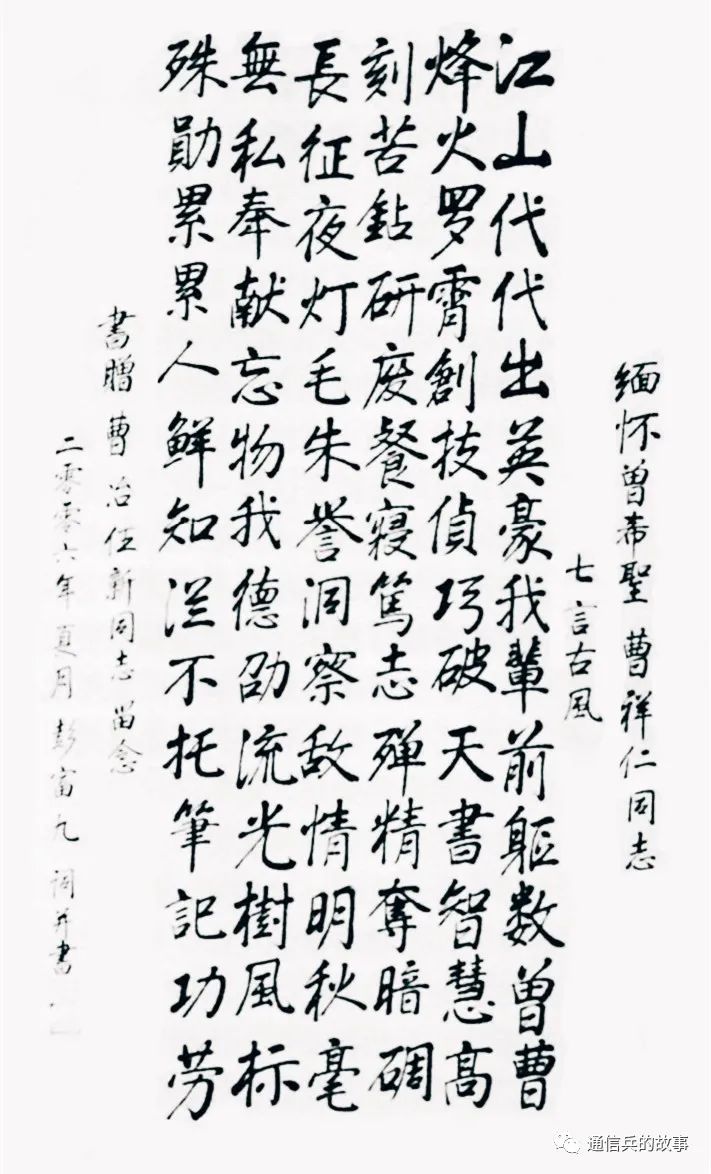 缅怀曾希聖 曹祥仁同志
七言古風
江山代代出英豪我輩前躯数曾曹
烽火罗霄創技偵巧破天書智慧高
刻苦鉆研废餐寝篤志殚精奪暗碉
長征夜灯毛朱誉洞察敌情明秋毫
無私奉献忘物我德劭流光樹風标
殊勛累累人鮮知泯不托筆記功劳
書贈曹冶伍新同志留念
二零零六年夏月彭富九词并書
通信兵的故事